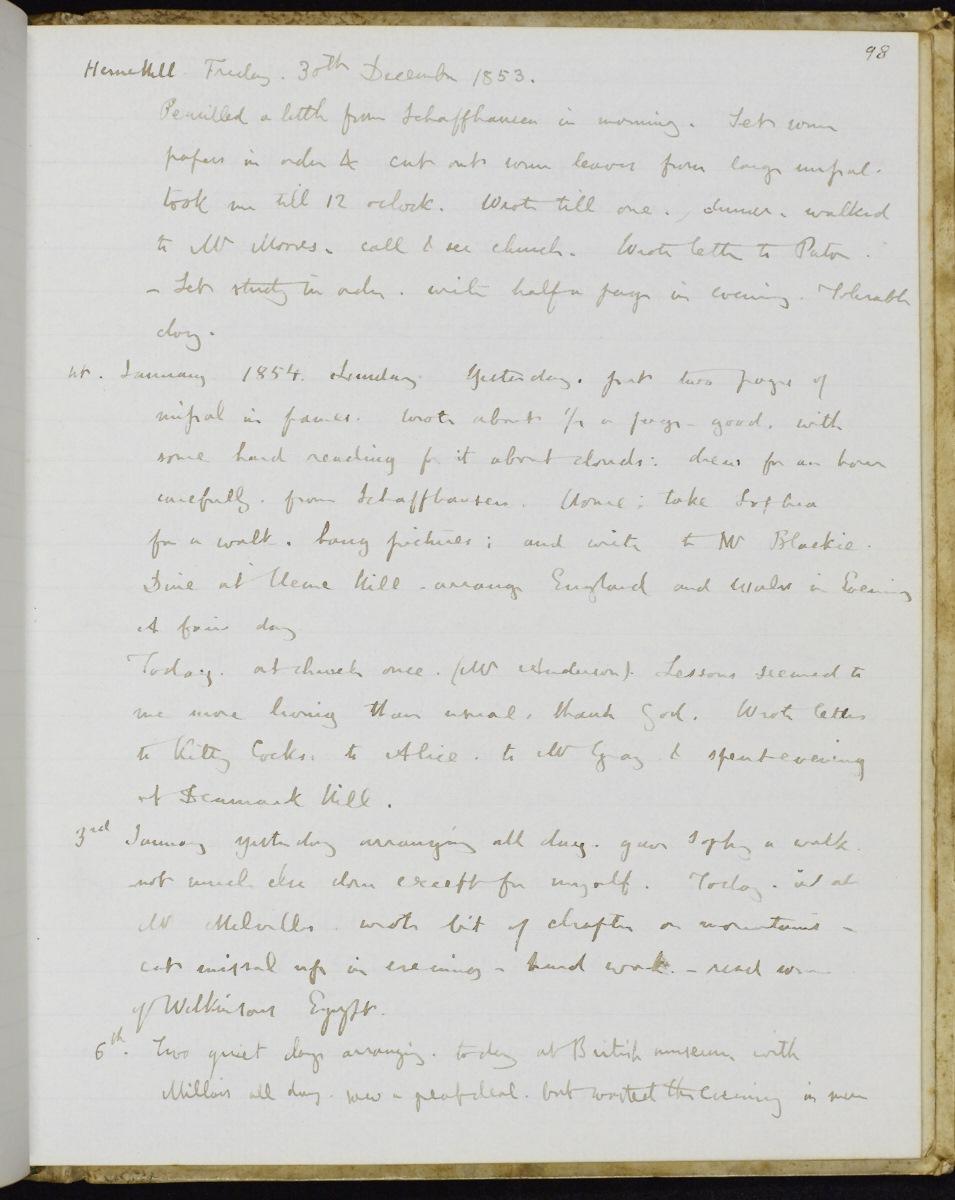 98
Herne Hill Friday. 30th December 1853.
Pencilled a little from Schaffhausen in morning. Set some
papers in order & cut out some leaves from large missal.
took me till 12 oclock. Wrote till one., dinner. walked
to Mr Moores. call & see church. Wrote letter to
- Set study in order. write half a page in evening. Tolerable
day.
1st. January 1854. Sunday. Yesterday. put two pages of
missal in frames. wrote about 1/2 a page - good. with
some hard reading for it about clouds: drew for an hour
carefully. from Schaffhausen. Home: take Sophia
for a walk. hang pictures; and write to Mr Blackie.
Dine at Herne Hill - arrange England and Wales in Evening
A fair day
Today. at church once. (Mr Anderson). Lessons seemed to
me more living than usual, thank God. Wrote letters
to Kitty Cocks. to Alice. to Mr Gray & spent evening
at Denmark Hill.
3rd January yesterday arranging all day. gave Sophy a walk.
not much else done except for myself. Today. at
Mr Melvilles. wrote bit of chapter on mountains -
cut missal up in evening - hard work. - read some
of Wilkinsons Egypt.
6th. Two quiet days arranging. today at British museum with
Millais all day. saw a great deal. but wasted the evening in